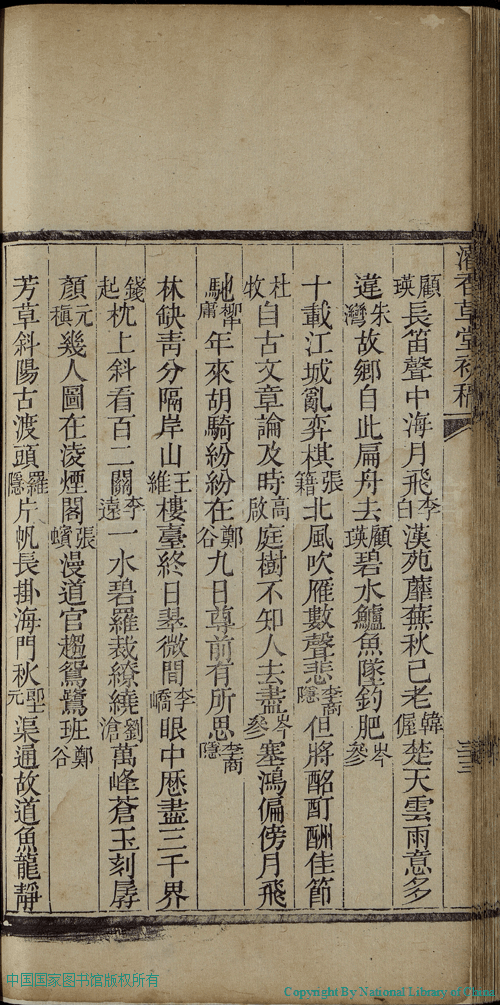 香草堂初稿
顧瑛長笛聲中海月飛李白漢苑蘼蕪秋已老韓偓楚天雲雨意多
違朱灣故鄉自此扁舟去顧瑛碧水鱸魚墜釣肥岑參
十載江城亂弈棋張籍北風吹雁數聲悲李商隱但將酩酊酬佳節
杜牧自古文章論及時高啟庭樹不知人去盡岑參塞鴻偏傍月飛
馳柳中庸年來胡騎紛紛在鄭谷九日尊前有所思李商隱
林缺靑分隔岸山王維樓臺終日翠微間李嶠眼中歷盡三千界
錢起枕上斜看百二關李遠一水碧羅裁繚繞劉滄萬峰蒼玉刻孱
顏元稹幾人圖在凌煙閣張蠙漫道官趨鴛鷺班鄭谷
芳草斜陽古渡頭羅隱片帆長掛海門秋郎士元渠通故道魚龍靜
中国国家图书馆版权所有
Copyright By National Library of China